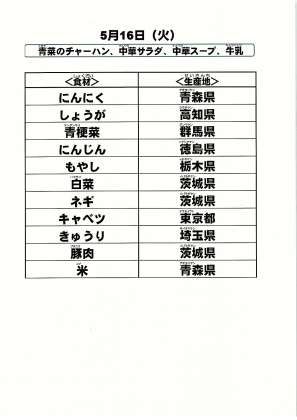 5月16日（火）
青菜のチャーハン、中華サラダ、中華スープ、牛乳
＜食材＞ ＜生産地＞
にんにく 青森県
しょうが 高知県
青梗菜 群馬県
にんじん 徳島県
もやし 栃木県
白菜 茨城県
ネギ 茨城県
キャベツ 東京都
きゅうり 埼玉県
豚肉 茨城県
米 青森県